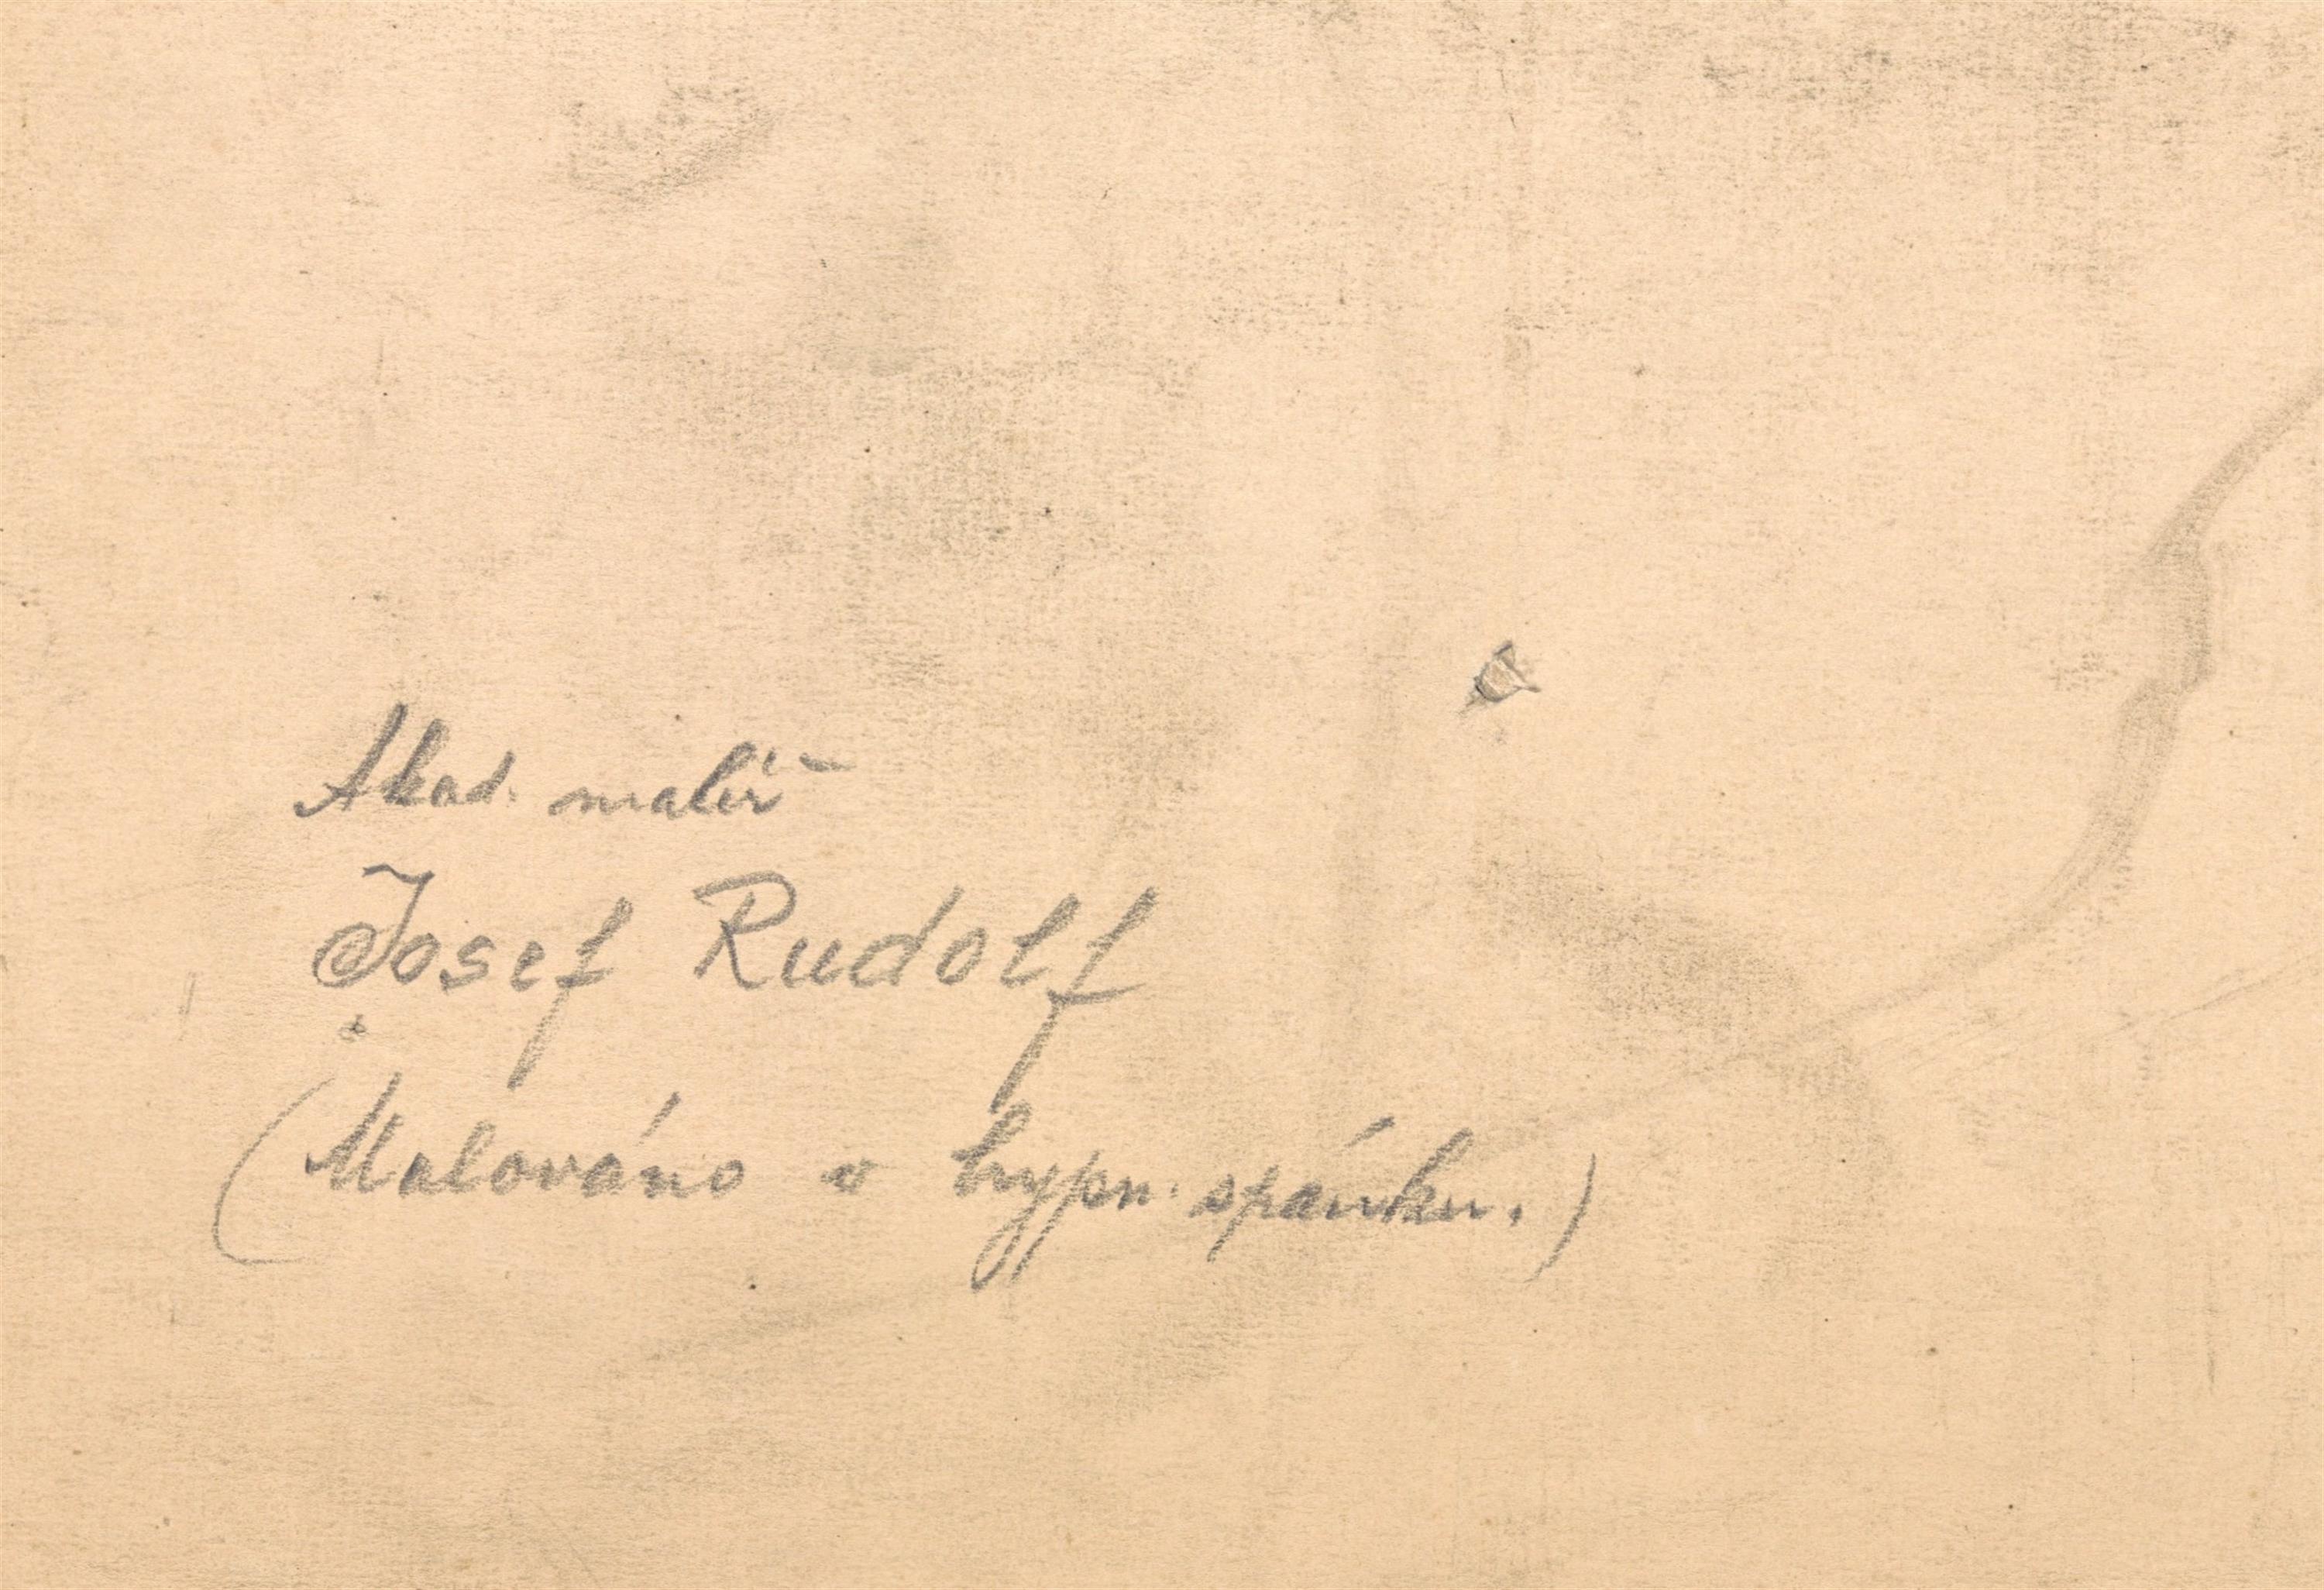 Akad. malíř
Josef Rudolf
(Malováno v hypn. spánku.)